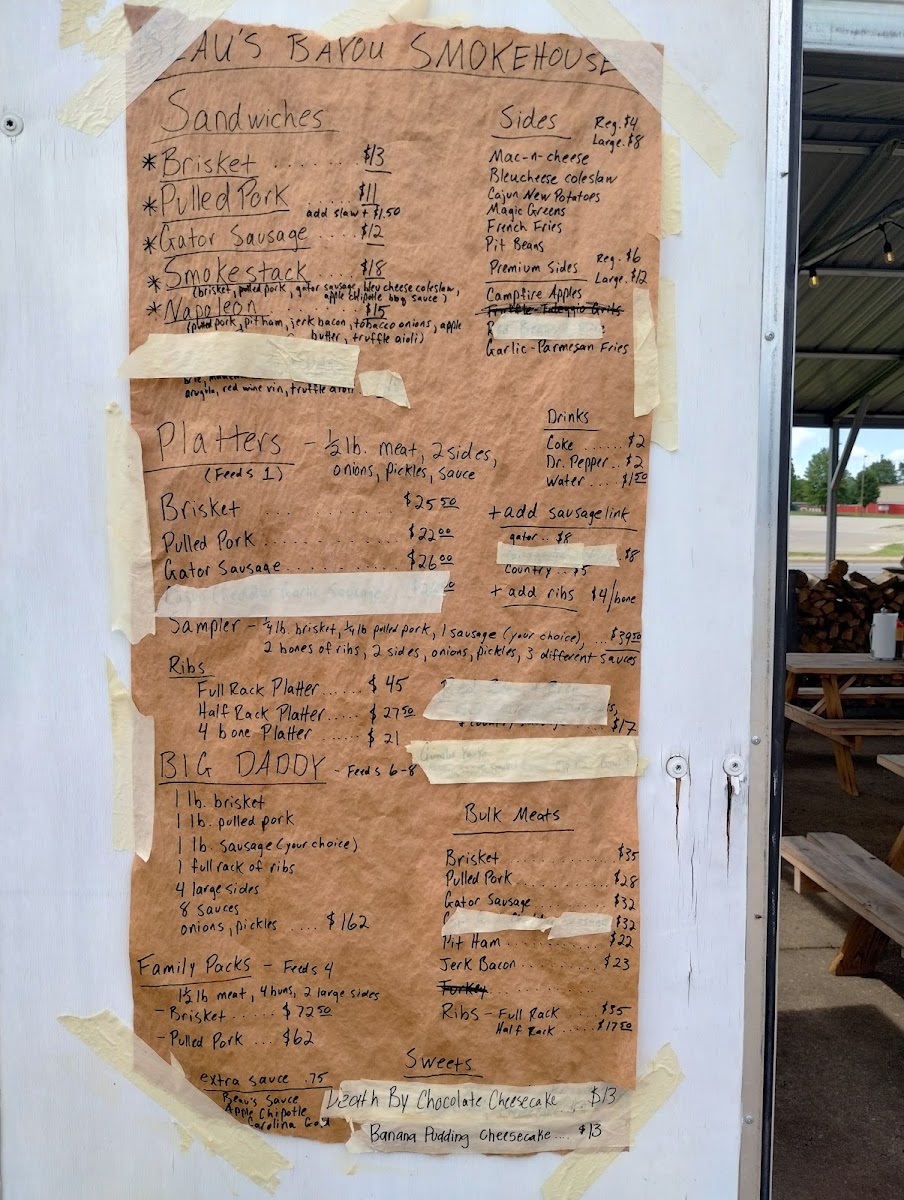 BAYOU SMOKEHOUSE
Sandwiches
* Brisket ...... $13
* Pulled Pork .... $11
add slaw + $1.50
* Gator Sausage .... $12
* Smokestack .... $18
(brisket, pulled pork, gator sausage, bleu cheese coleslaw,
apple chipotle bbq sauce)
* Napoleon .... $15
(pulled pork, pit ham, jerk bacon, tobacco onions, apple
butter, truffle aioli)
arugula, red wine vin, truffle aioli
Sides Reg. $4
Large. $8
Mac-n-cheese
Bleucheese coleslaw
Cajun New Potatoes
Magic Greens
French Fries
Pit Beans
Premium Sides Reg. $6
Large. $12
Campfire Apples
Garlic-Parmesan Fries
Drinks
Coke ...... $2
Dr. Pepper .. $2
Water .... $1.50
Platters - 1/2 lb. meat, 2 sides,
(Feeds 1) onions, pickles, sauce
Brisket ........ $25 50
Pulled Pork ........ $22 00
Gator Sausage ........ $26 00
+ add sausage link
gator .. $8
$8
Country .. $5
+ add ribs $4/bone
Sampler - 1/4 lb. brisket, 1/4 lb pulled pork, 1 sausage (your choice), ... $39 50
2 bones of ribs, 2 sides, onions, pickles, 3 different sauces
Ribs
Full Rack Platter ...... $45
Half Rack Platter ..... $27 50
4 bone Platter .... $21
$17
BIG DADDY - Feeds 6-8
1 lb. brisket
1 lb. pulled pork
1 lb. sausage (your choice)
1 full rack of ribs
4 large sides
8 sauces
onions, pickles .... $162
Bulk Meats
Brisket ........ $35
Pulled Pork ........ $28
Gator Sausage ........ $32
$32
Pit Ham ........ $22
Jerk Bacon ........ $23
Turkey ........
Ribs - Full Rack $35
Half Rack $17 50
Family Packs - Feeds 4
1 1/2 lb meat, 4 buns, 2 large sides
- Brisket .... $72 50
- Pulled Pork ... $62
extra sauce .75
Beau's Sauce
Apple Chipotle
Carolina Gold
Sweets
Death By Chocolate Cheesecake ... $13
Banana Pudding Cheesecake .... $13